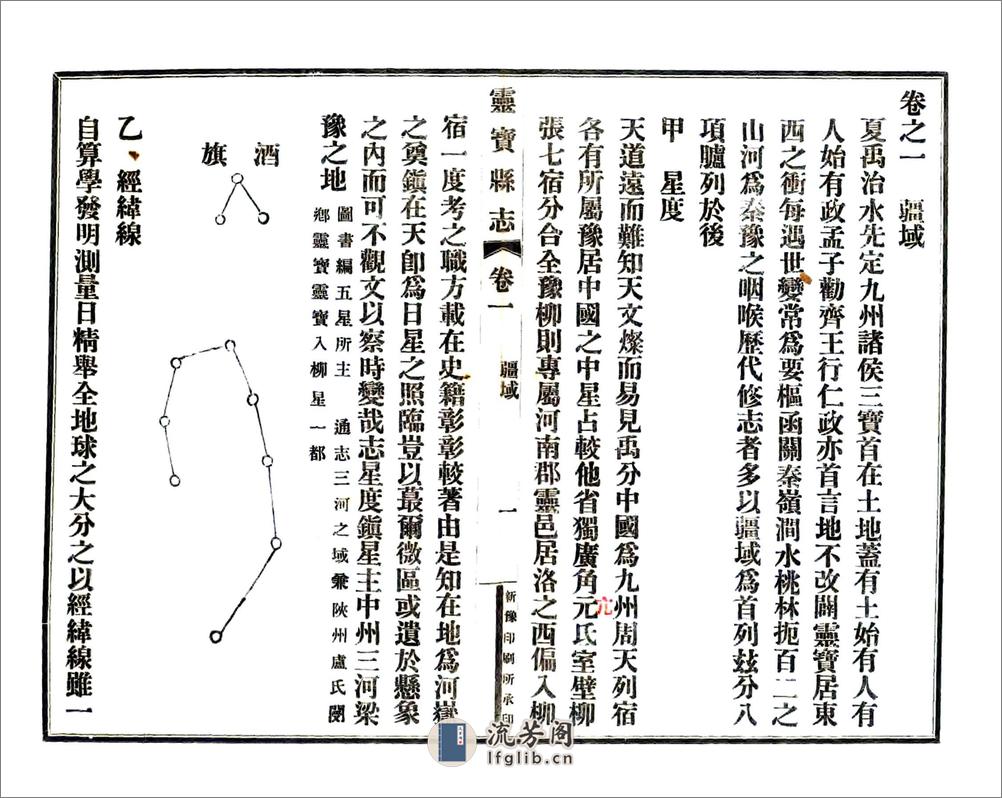 卷之一　疆域
夏禹治水先定九州諸侯三寶首在土地蓋有土始有人有
人始有政孟子勸齊王行仁政亦首言地不改闢靈寶居東
西之衝每遇世變常爲要樞函關秦嶺澗水桃林扼百二之
山河爲秦豫之咽喉歷代修志者多以疆域爲首列玆分八
項臚列於後
甲　星度
天道遠而難知天文燦而易見禹分中國爲九州周天列宿
各有所屬豫居中國之中星占較他省獨廣角元氐室壁柳
亢
張七宿分合全豫柳則專屬河南郡靈邑居洛之西偏入柳
靈寶縣志　卷一　疆域　一　新豫印刷所承印
宿一度考之職方載在史籍彰彰較著由是知在地爲河嶽
之奠鎭在天卽爲日星之照臨豈以蕞爾微區或遺於懸象
之內而可不觀文以察時變哉志星度鎭星主中州三河梁
豫之地
圖書編五星所主　通志三河之域兼陝州盧氏閿
鄕靈寶靈寶入柳星一都
酒
旗
乙、經緯線
自算學發明測量日精舉全地球之大分之以經緯線雖一
流芳阁
lfglib.cn